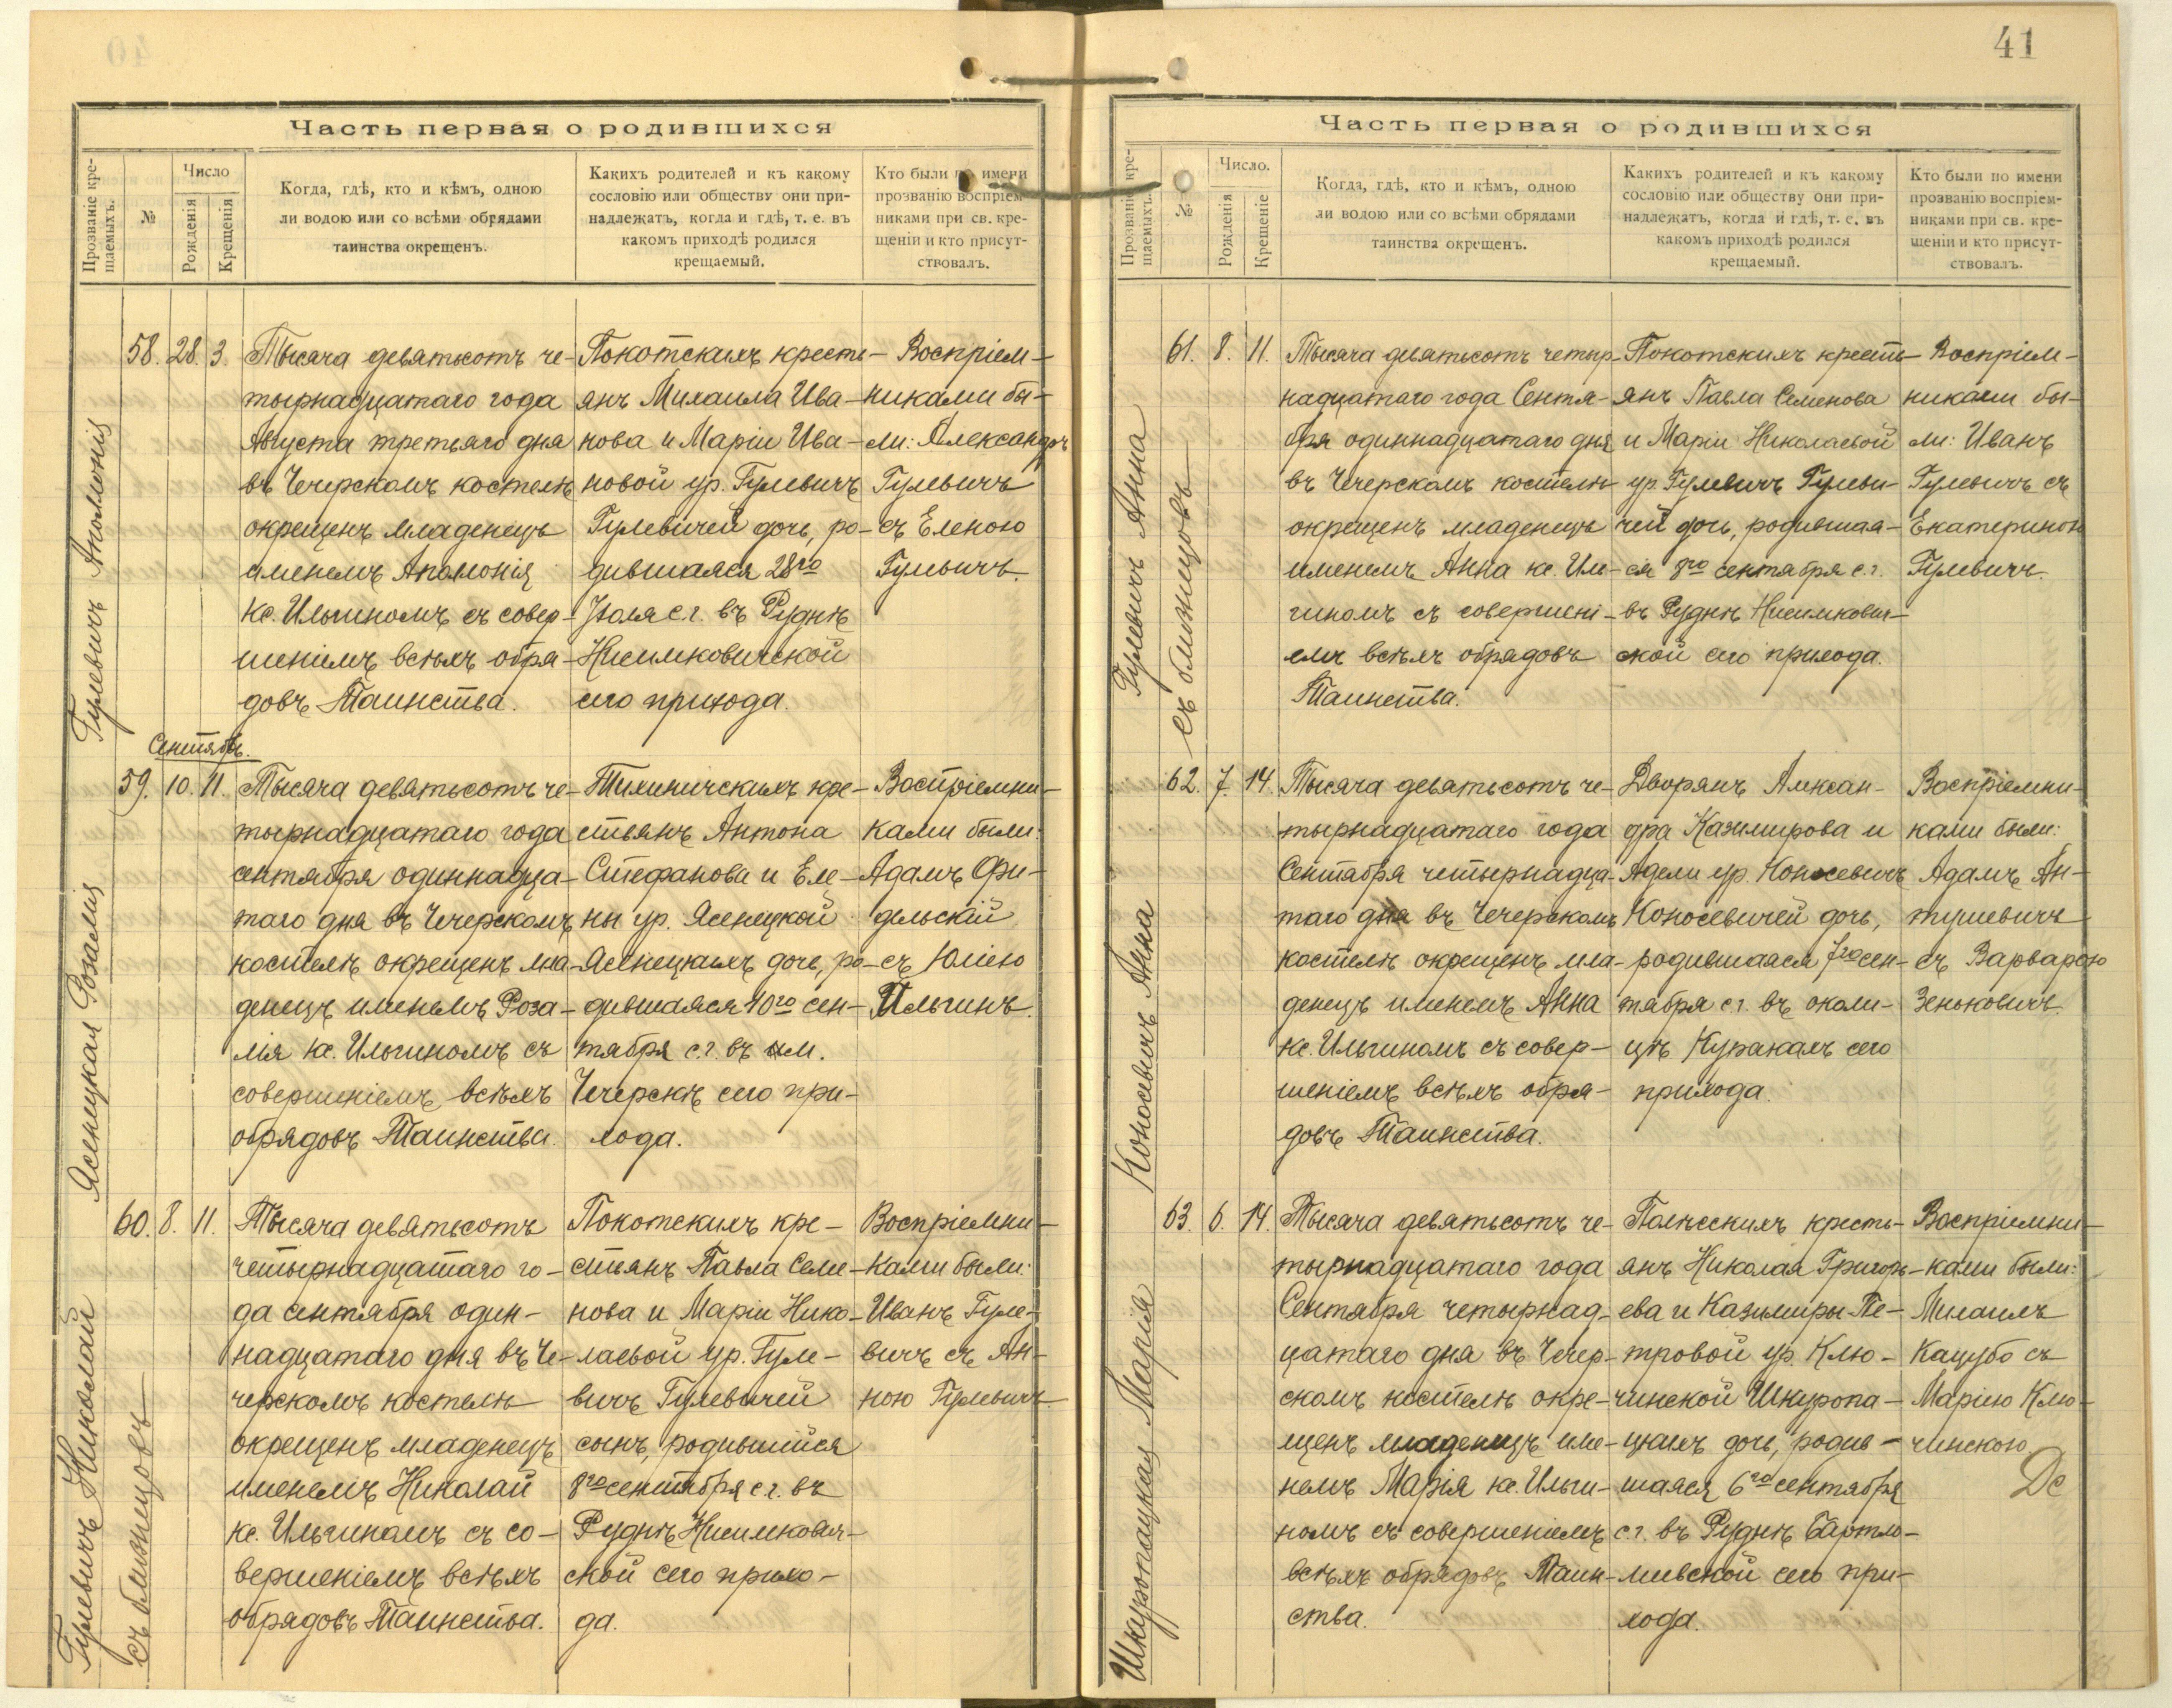 Часть первая о родившихся
Прозваніе кре-
щаемыхъ.
№
Число
Рожденія
Крещенія
Когда, гдѣ, кто и кѣмъ, одною
ли водою или со всѣми обрядами
таинства окрещенъ.
Какихъ родителей и къ какому
сословію или обществу они при-
надлежатъ, когда и гдѣ, т. е. въ
какомъ приходѣ родился
крещаемый.
Кто были по имени
прозванію воспріем-
никами при св. кре-
щеніи и кто присут-
ствовалъ.
Гулевичъ Аполонія
58. 28. 3.
Тысяча девятьсотъ че-
тырнадцатаго года
Августа третьяго дня
въ Чечерскомъ костелѣ
окрещенъ младенецъ
именемъ Аполонія
кс. Ильгиномъ съ совер-
шеніемъ всѣхъ обря-
довъ Таинства.
Покотскихъ кресть-
янъ Михаила Ива-
нова и Маріи Ива-
новой ур. Гулевичъ
Гулевичей дочь, ро-
дившаяся 28го
Іюля с.г. въ Руднѣ
Нисимковичской
сего прихода.
Воспріем-
никами бы-
ли: Александръ
Гулевичъ
съ Еленою
Гулевичъ.
Сентябрь.
Ясенецкая Розалія
59. 10. 11.
Тысяча девятьсотъ че-
тырнадцатаго года
сентября одиннадца-
таго дня въ Чечерскомъ
костелѣ окрещенъ мла-
денецъ именемъ Роза-
лія кс. Ильгиномъ съ
совершеніемъ всѣхъ
обрядовъ Таинства.
Тихиничскихъ кре-
стьянъ Антона
Стефанова и Еле-
ны ур. Ясенецкой
Ясенецкихъ дочь, ро-
дившаяся 10го сен-
тября с.г. въ м.
Чечерскѣ сего при-
хода.
Воспріемни-
ками были:
Адамъ Фи-
дельскій
съ Юліею
Ильгинъ.
Гулевичъ Николай
съ близнецовъ
60. 8. 11.
Тысяча девятьсотъ
четырнадцатаго го-
да сентября один-
надцатаго дня въ Че-
черскомъ костелѣ
окрещенъ младенецъ
именемъ Николай
кс. Ильгиномъ съ со-
вершеніемъ всѣхъ
обрядовъ Таинства.
Покотскихъ кре-
стьянъ Павла Семе-
нова и Маріи Нико-
лаевой ур. Гуле-
вичъ Гулевичей
сынъ, родившійся
8го сентября с.г. въ
Руднѣ Нисимкович-
ской сего прихо-
да.
Воспріемни-
ками были:
Иванъ Гуле-
вичъ съ Ан-
ною Гулевичъ
41
Часть первая о родившихся
Прозваніе кре-
щаемыхъ.
№
Число.
Рожденія
Крещеніе
Когда, гдѣ, кто и кѣмъ, одною
ли водою или со всѣми обрядами
таинства окрещенъ.
Какихъ родителей и къ какому
сословію или обществу они при-
надлежатъ, когда и гдѣ, т. е. въ
какомъ приходѣ родился
крещаемый.
Кто были по имени
прозванію воспріем-
никами при св. кре-
щеніи и кто присут-
ствовалъ.
Гулевичъ Анна
съ близнецовъ
61. 8. 11.
Тысяча девятьсотъ четыр-
надцатаго года Сентя-
бря одиннадцатаго дня
въ Чечерскомъ костелѣ
окрещенъ младенецъ
именемъ Анна кс. Иль-
гиномъ съ совершені-
емъ всѣхъ обрядовъ
Таинства.
Покотскихъ кресть-
янъ Павла Семенова
и Маріи Николаевой
ур. Гулевичъ Гулеви-
чей дочь, родившая-
ся 8го сентября с.г.
въ Руднѣ Нисимкович-
ской сего прихода.
Воспріем-
никами бы-
ли: Иванъ
Гулевичъ съ
Екатериною
Гулевичъ.
Коносевичъ Анна
62. 7. 14.
Тысяча девятьсотъ че-
тырнадцатаго года
Сентября четырнадца-
таго дня въ Чечерскомъ
костелѣ окрещенъ мла-
денецъ именемъ Анна
кс. Ильгиномъ съ совер-
шеніемъ всѣхъ обря-
довъ Таинства.
Дворянъ Алексан-
дра Казимирова и
Адели ур. Коносевичъ
Коносевичей дочь,
родившаяся 7го сен-
тября с.г. въ околи-
цѣ Куракахъ сего
прихода.
Воспріемни-
ками были:
Адамъ Ан-
тушевичъ
съ Варварою
Зеньковичъ.
Шкуропацкая Марія
63. 6. 14.
Тысяча девятьсотъ че-
тырнадцатаго года
Сентября четырнад-
цатаго дня въ Чечер-
скомъ костелѣ окре-
щенъ младенецъ име-
немъ Марія кс. Ильги-
номъ съ совершеніемъ
всѣхъ обрядовъ Таин-
ства.
Полѣсскихъ кресть-
янъ Николая Григорь-
ева и Казимиры Пе-
тровой ур. Клю-
чинской Шкуропа-
цкихъ дочь, родив-
шаяся 6го сентября
с.г. въ Руднѣ Бартло-
миевской сего при-
хода.
Воспріемни-
ками были:
Михаилъ
Кацубо съ
Маріею Клю-
чинскою.